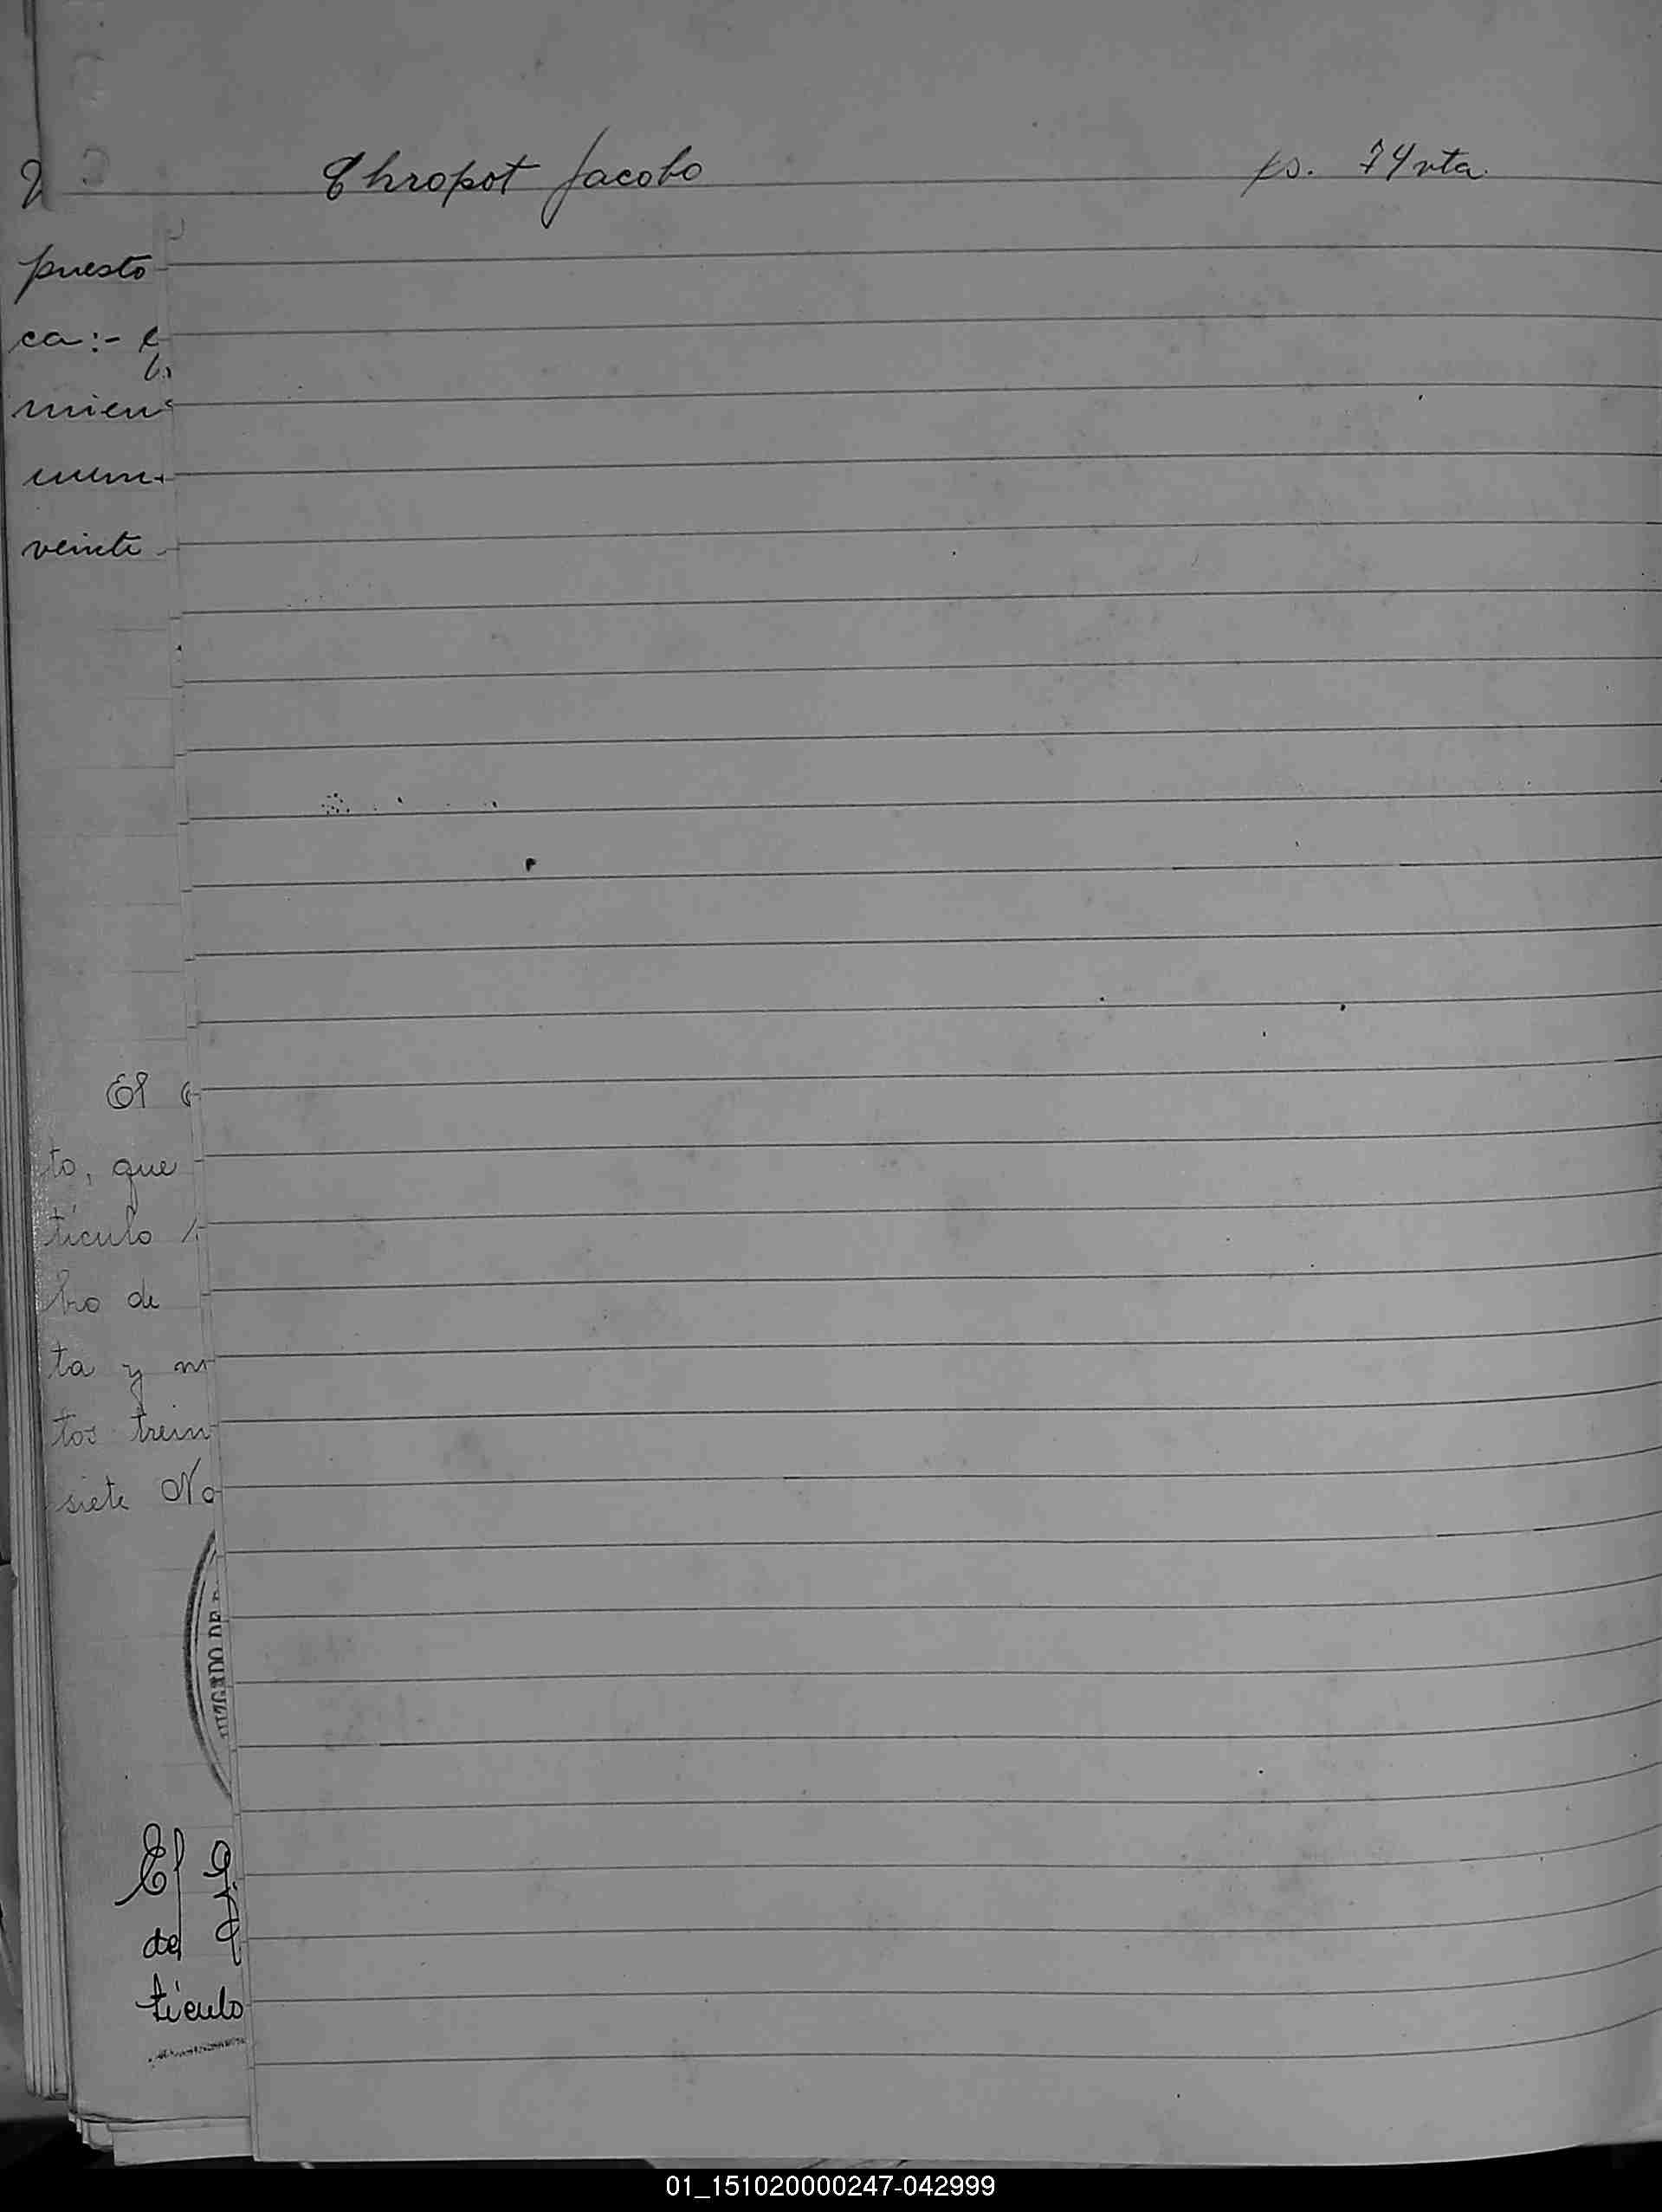 Chropot Jacobo fs. 74 vta.
puesto
ca:-
mien
num
veinte
El
to, que
tículo
bro de
ta y m
tos trein
siete No
JUZGADO DE
El
del
tículo
01_151020000247-042999